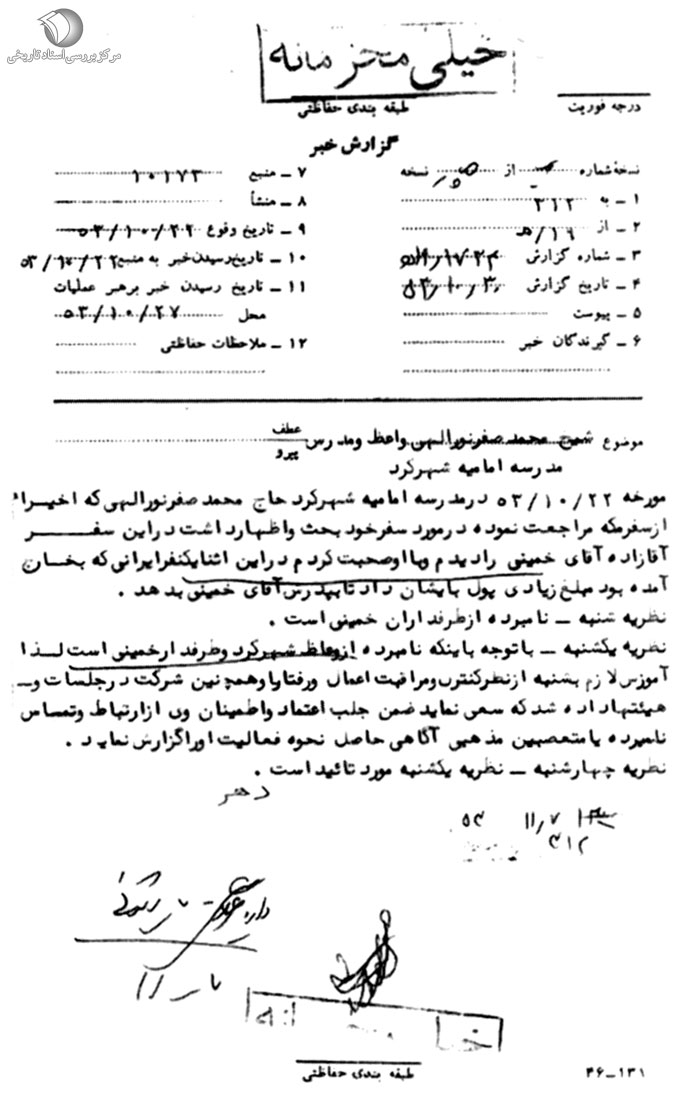 مرکز بررسی اسناد تاریخی
خیلی محرمانه
طبقه بندی حفاظتی
درجه فوریت
گزارش خبر
نسخهٔ شماره از نسخه
۱ ـ به ۳۱۲
۲ ـ از ۱۶/هـ
۳ ـ شماره گزارش
۴ ـ تاریخ گزارش
۵ ـ پیوست
۶ ـ گیرندگان خبر
۷ ـ منبع ۱۰۱۷۳
۸ ـ منشأ
۹ ـ تاریخ وقوع ۵۳/۱۰/۲۲
۱۰ ـ تاریخ رسیدن خبر به منبع ۵۳/۱۰/۲۲
۱۱ ـ تاریخ رسیدن خبر برهبر عملیات
محل ۵۳/۱۰/۲۷
۱۲ ـ ملاحظات حفاظتی
موضوع شیخ محمد صفرنورالهی واعظ ومدرس عطف پیرو
مدرسه امامیه شهرکرد
مورخه ۵۳/۱۰/۲۲ درمدرسه امامیه شهرکرد حاج محمد صفرنورالهی که اخیراً
ازسفرمکه مراجعت نموده درمورد سفرخود بحث واظهارداشت دراین سفر
آقازاده آقای خمینی رادیدم وبااوصحبت کردم دراین اثنایکنفرایرانی که بخان
آمده بود مبلغ زیادی پول بایشان داد تابپدرش آقای خمینی بدهد .
نظریه شنبه ـ نامبرده ازطرفداران خمینی است .
نظریه یکشنبه ـ باتوجه باینکه نامبرده ازوعاظ شهرکرد وطرفدارخمینی است لذا
آموزش لازم بشنبه ازنظرکنترل ومراقبت اعمال ورفتاراو وهمچنین شرکت درجلسات و
هیئتهاداده شد که سعی نماید ضمن جلب اعتماد واطمینان وی ازارتباط وتماس
نامبرده بامتعصبین مذهبی آگاهی حاصل نحوه فعالیت اوراگزارش نماید .
نظریه چهارشنبه ـ نظریه یکشنبه مورد تائید است .
۳۱۲
طبقه بندی حفاظتی
۴۶-۱۳۱